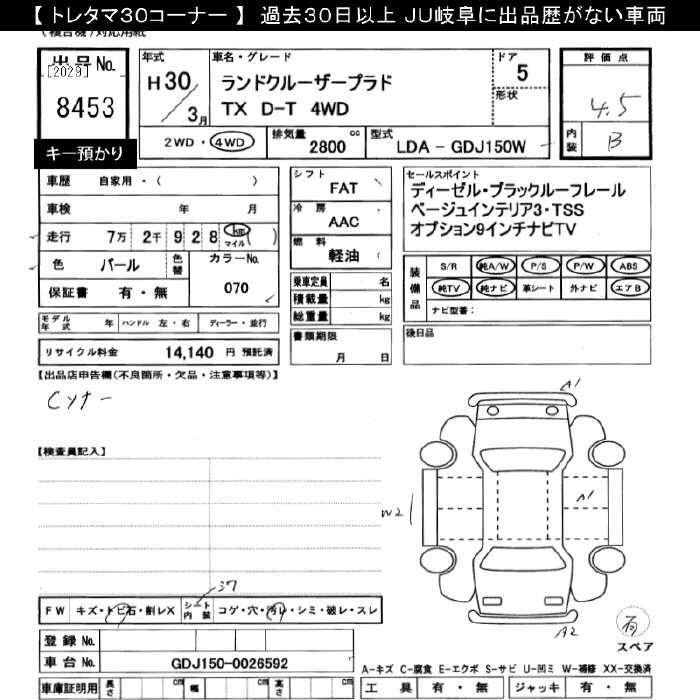 【 トレタマ30コーナー 】 過去30日以上 JU岐阜に出品歴がない車両
(複合機)対応用紙
出品No.
[2029]
8453
キー預かり
年式
H30/3月
車名・グレード
ランドクルーザープラド
TX D-T 4WD
ドア
5
形状
評価点
4.5
内装
B
2WD・4WD
排気量
2800 cc
型式
LDA - GDJ150W
車歴 自家用・( )
車検 年 月
走行 7万 2千 9 2 8 km マイル ( )
色 パール 色替 カラーNo.
保証書 有・無 070
シフト
FAT
冷房
AAC
燃料
軽油
乗車定員 名
積載量 kg
総重量 kg
書類期限
月 日
セールスポイント
ディーゼル・ブラックルーフレール
ベージュインテリア3・TSS
オプション9インチナビTV
装備品
S/R 純A/W P/S P/W ABS
純TV 純ナビ 革シート 外ナビ エアB
ナビ型番:
後日品
モデル年式 年 ハンドル 左・右 ディーラー・並行
リサイクル料金 14,140 円 預託済
【出品店申告欄(不良箇所・欠品・注意事項等)】
Cソナー
【検査員記入】
A1
W2
A1
A2
有
スペア
シワ
FW キズ・トビ石・割レX シート内装 コゲ・穴・汚レ・シミ・破レ・スレ
登録 No.
車台 No. GDJ150-0026592
車庫証明用 長さ cm 幅 cm 高さ cm
A-キズ C-腐食 E-エクボ S-サビ U-凹ミ W-補修 XX-交換済
工具 有・無 ジャッキ 有・無